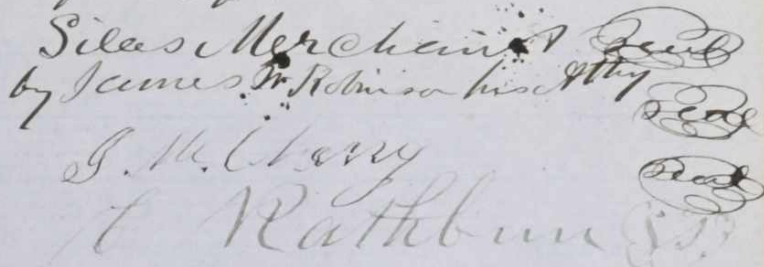 Silas Merchant Seal
by James W Robinson his Atty Seal
J. M. Cherry Seal
C Rathbun